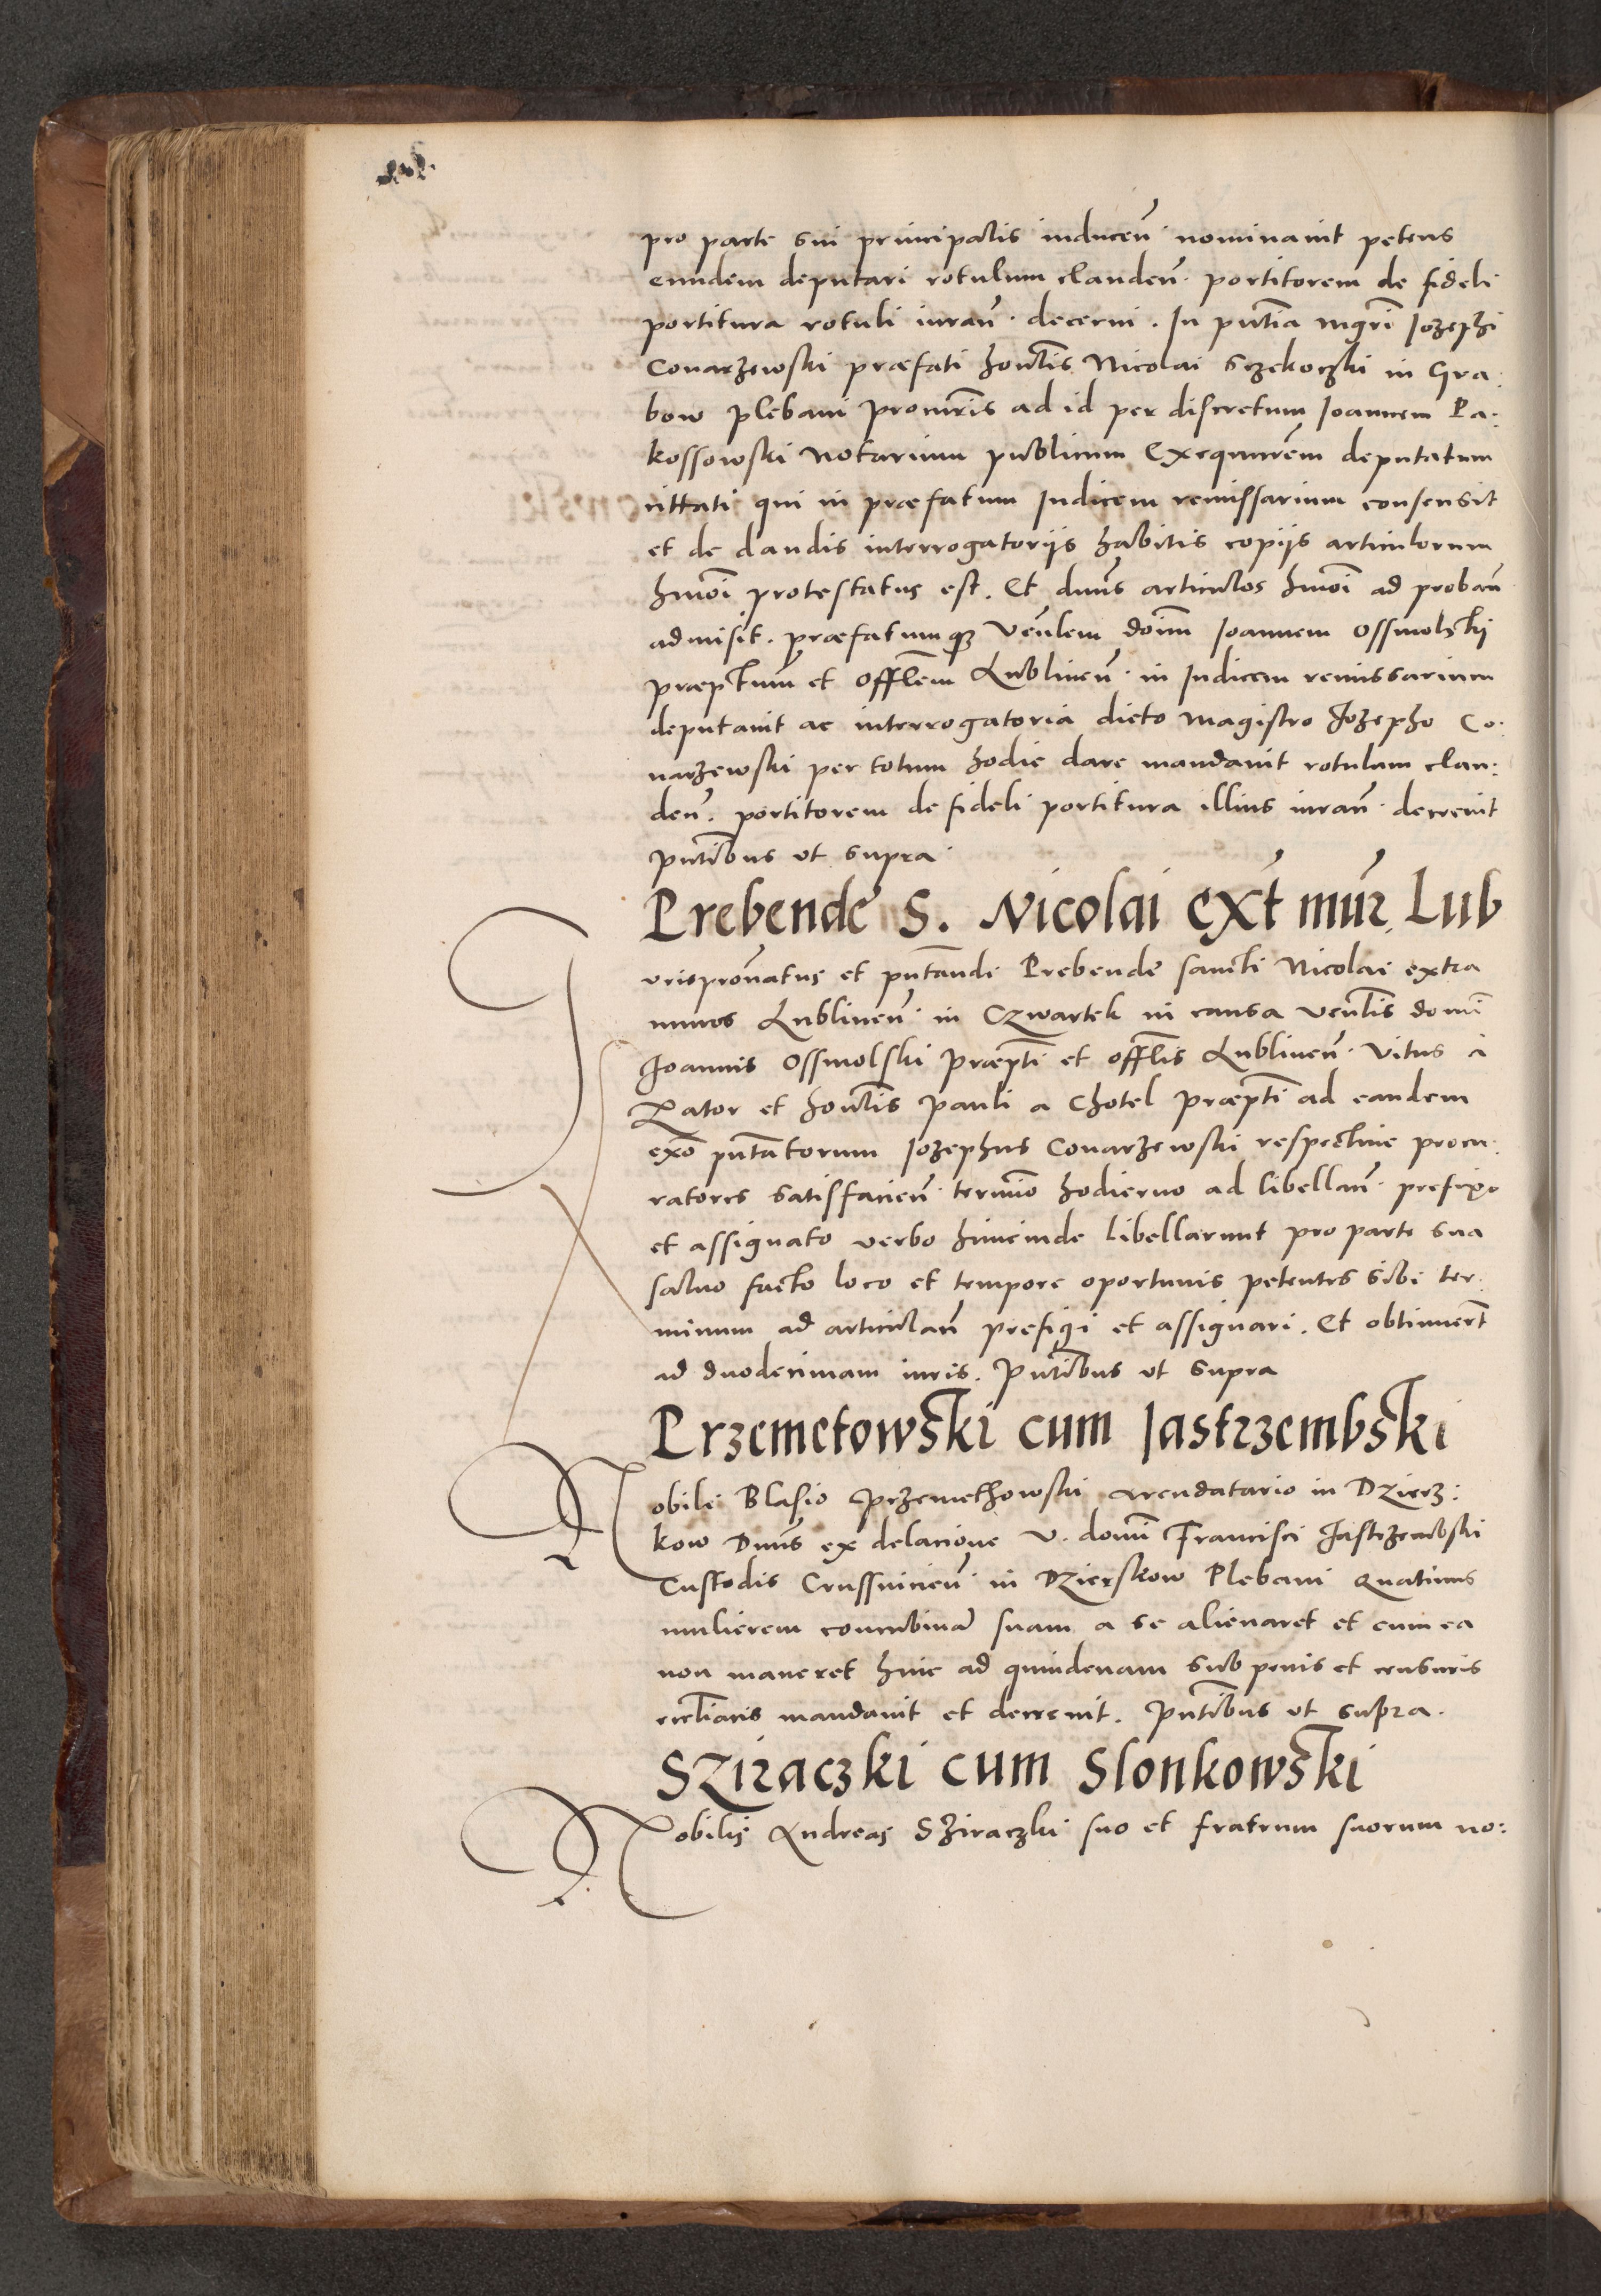 pro parte sui principalis inducen̄ nominavit petens
eundem deputari rotulum clauden̄. portitorem de fideli
portitura rotuli iuran̄. decerni. In pn̄tia mgr̄i Iozephi
Conarzewski præfati hon̄lis Nicolai Szekoczki in Gra:
bow plebani procur̄is ad id per discretum Ioannem Pa:
kossowski Notarium publicum Exequutorem deputatum
cittati qui in præfatum Iudicem remissarium consensit
et de dandis interrogatoriis habitis copiis articulorum
hmōi protestatus est. Et dnus articulos hmōi ad proban̄
admisit. præfatumqz Ven̄lem don̄m Ioannem Ossmolskij
præptum et Offl̄em Lublinen̄. in Iudicem remissarium
deputavit ac interrogatoria dicto Magistro Iozepho Co:
narzewski per totum hodie dare mandavit rotulum clau:
den̄. portitorem de fideli portitura illius iuran̄. decrevit
pn̄tibus ut supra.
Prebende S. Nicolai Ext mur Lub
Iurispronatus et pn̄tandi Prebende sancti Nicolai extra
muros Lublinen̄. in Czwartek in causa Ven̄lis domi
Ioannis Ossmolski Præpti et offlis Lublinen̄. Vitus a
Xator et hon̄lis Pauli a Chotel Præpti ad eandem
exo pn̄tatorum Iozephus Conarzewski respective procu:
ratores satisfacien̄. termino hodierno ad libellan̄. prefixo
et assignato verbo hincinde libellarunt pro parte sua
salvo facto loco et tempore oportunis petentes sibi ter:
minum ad articulan̄ prefigi et assignari. Et obtinuert
ad duodecimam iuris. Pn̄tibus ut supra
Przemetowski cum Jastrzembski
Nobili Blasio Przemethowski Arendatario in Dzierz:
kow Dnus ex delacione V. domi Francisci Jastrzembski
Custodis Crussvicien̄. in Dzierskow Plebani Quatinus
mulierem concubinā suam a se alienaret et cum ea
non maneret hinc ad quindenam sub penis et censuris
eccl̄iacis mandavit et decrevit. Pn̄tibus ut supra.
Sziraczki cum Slonkowski
Nobilis Andreas Sziraczki suo et fratrum suorum no: